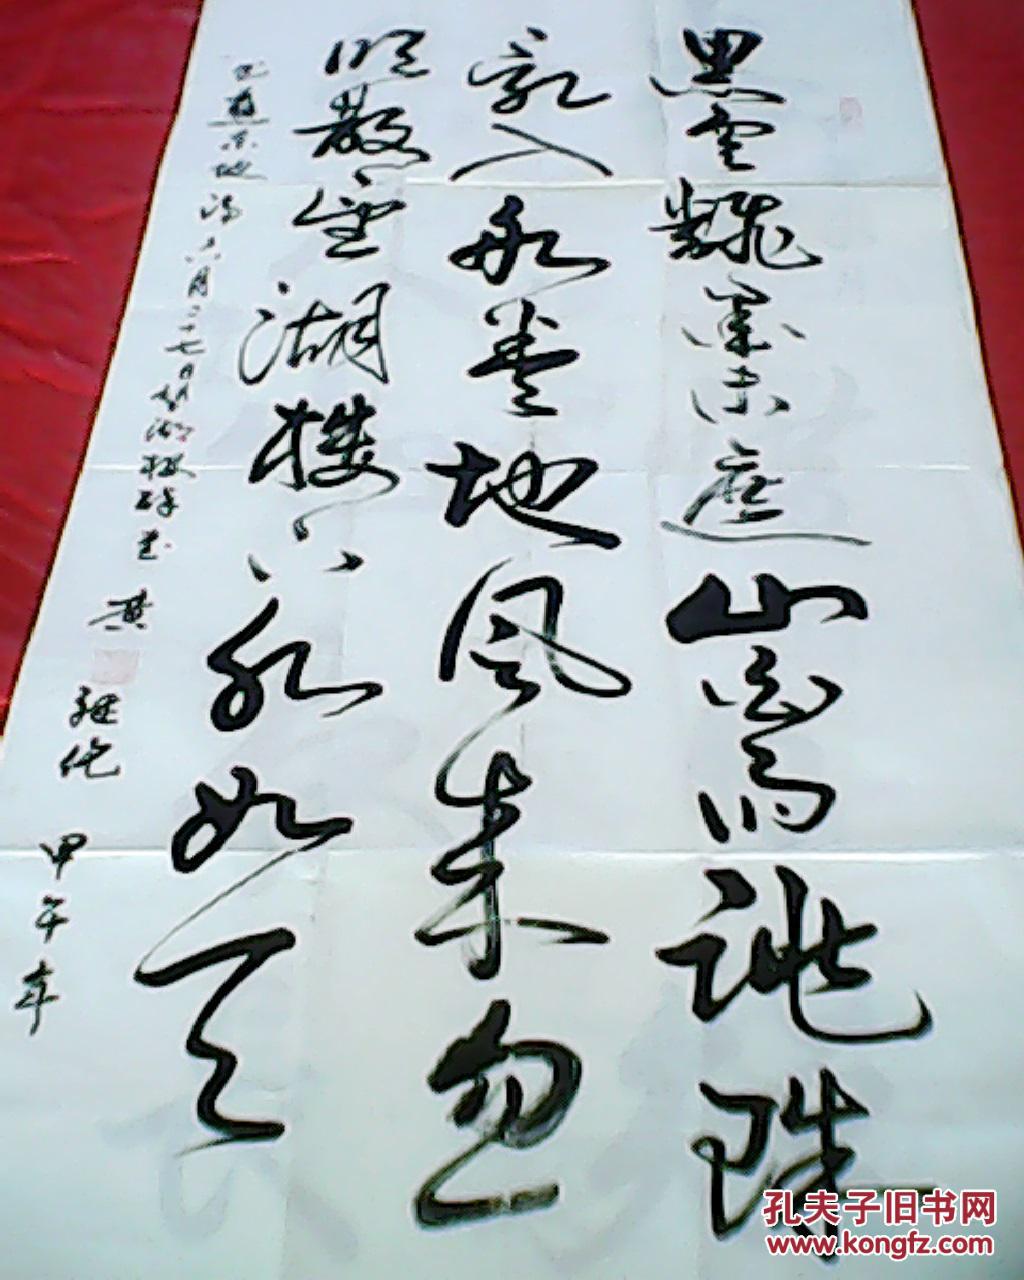 黑雲翻墨未遮山白雨跳珠
亂入船卷地風来忽
吹散望湖楼下水如天
书蘇东坡诗六月二十七日望湖楼醉书 黄 甲午年
孔夫子旧书网
www.kongfz.com